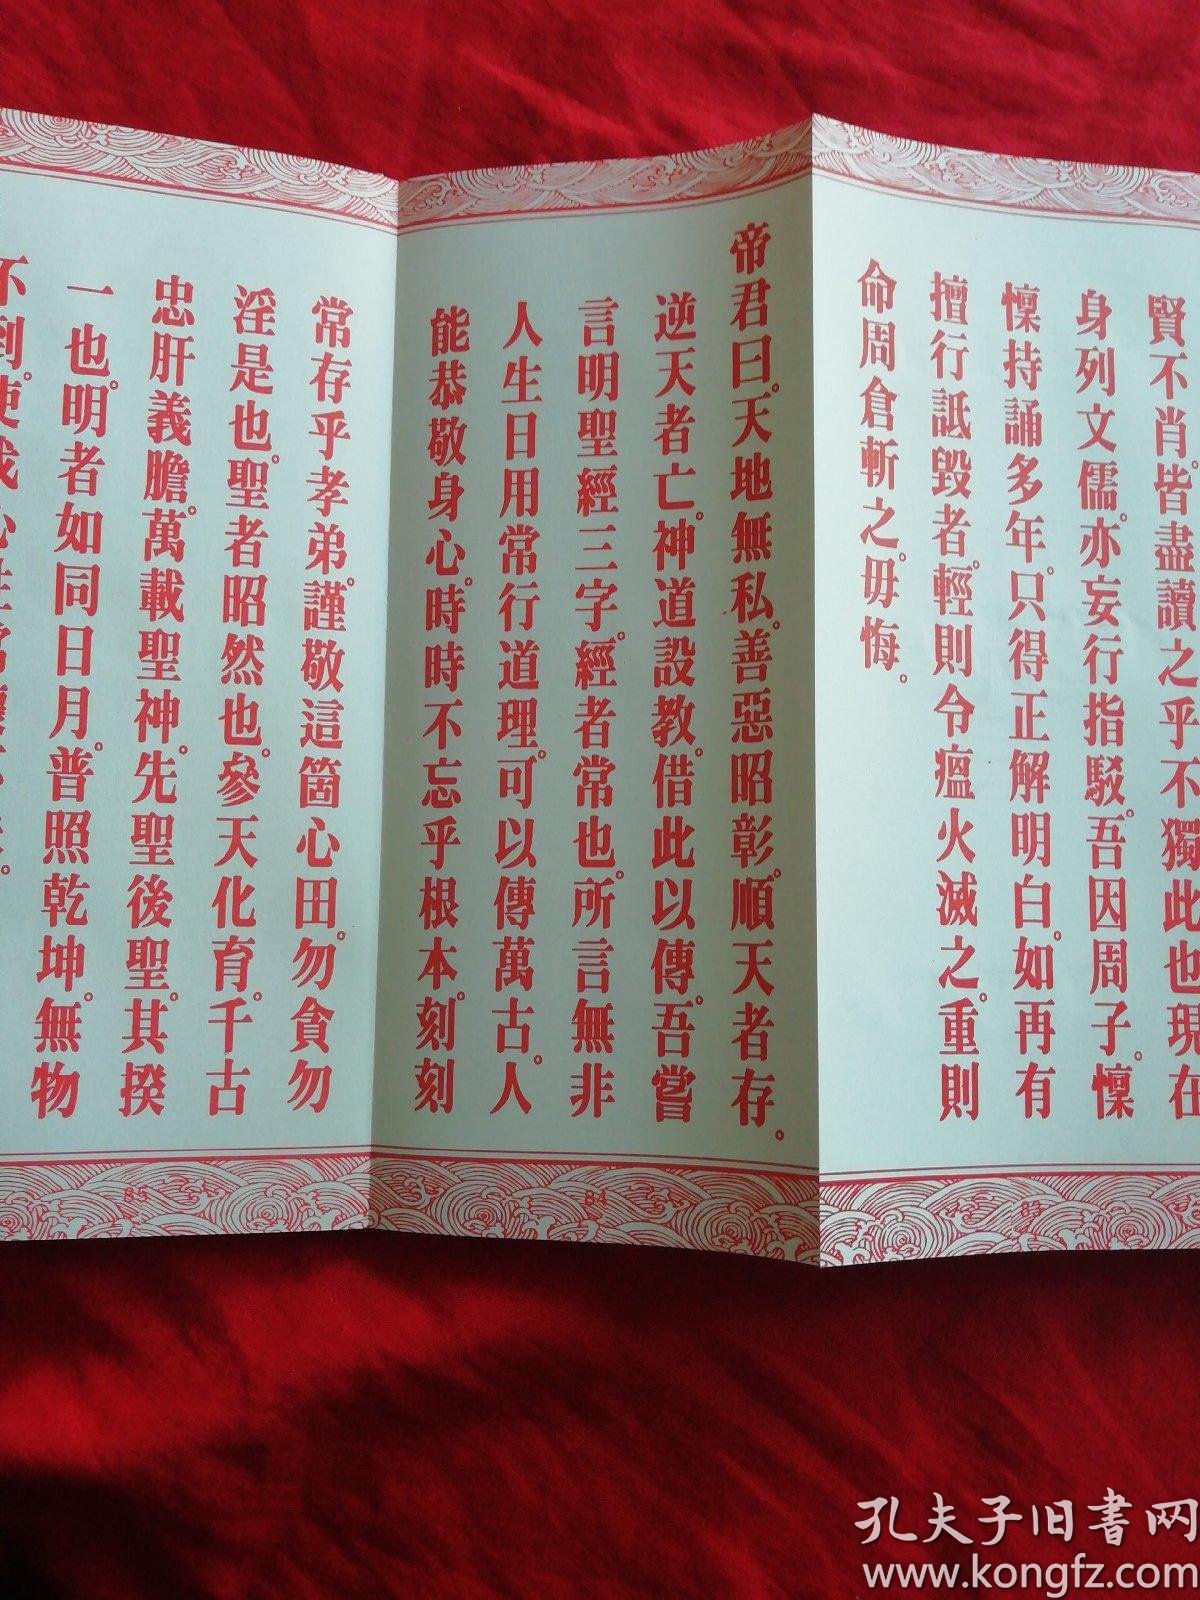 賢不肖。皆盡讀之乎。不獨此也。現在
身列文儒。亦妄行指駁。吾因周子。懍
懍持誦多年。只得正解明白。如再有
擅行詆毀者。輕則令瘟火滅之。重則
命周倉斬之。毋悔。
帝君曰。天地無私。善惡昭彰。順天者存。
逆天者亡。神道設教。借此以傳。吾嘗
言明聖經三字。經者常也。所言無非
人生日用常行道理。可以傳萬古。人
能恭敬身心。時時不忘乎根本。刻刻
常存乎孝弟。謹敬這箇心田。勿貪勿
淫是也。聖者昭然也。參天化育。千古
忠肝義膽。萬載聖神。先聖後聖。其揆
一也。明者如同日月。普照乾坤。無物
不到。使我心
83
84
85
孔夫子旧书网
www.kongfz.com